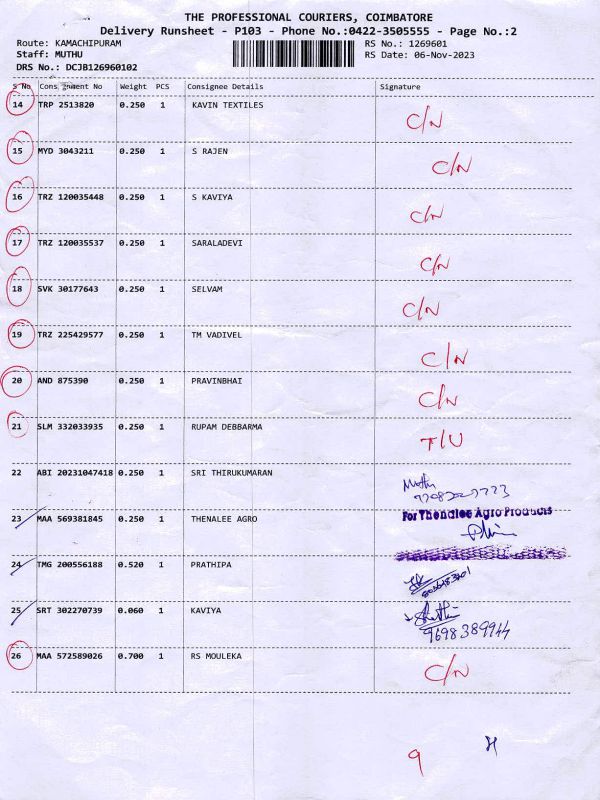 THE PROFESSIONAL COURIERS, COIMBATORE
Delivery Runsheet - P103 - Phone No.:0422-3505555 - Page No.:2
Route: KAMACHIPURAM RS No.: 1269601
Staff: MUTHU RS Date: 06-Nov-2023
DRS No.: DCJB126960102
S No Consignment No Weight PCS Consignee Details Signature
14 TRP 2513820 0.250 1 KAVIN TEXTILES C/N
15 MYD 3043211 0.250 1 S RAJEN C/N
16 TRZ 120035448 0.250 1 S KAVIYA C/N
17 TRZ 120035537 0.250 1 SARALADEVI C/N
18 SVK 30177643 0.250 1 SELVAM C/N
19 TRZ 225429577 0.250 1 TM VADIVEL C/N
20 AND 875390 0.250 1 PRAVINBHAI C/N
21 SLM 332033935 0.250 1 RUPAM DEBBARMA T/U
22 ABI 20231047418 0.250 1 SRI THIRUKUMARAN Muthu
23 MAA 569381845 0.250 1 THENALEE AGRO For Thenalee Agro Products
24 TMG 200556188 0.520 1 PRATHIPA
25 SRT 302270739 0.060 1 KAVIYA
9698389944
26 MAA 572589026 0.700 1 RS MOULEKA C/N
9